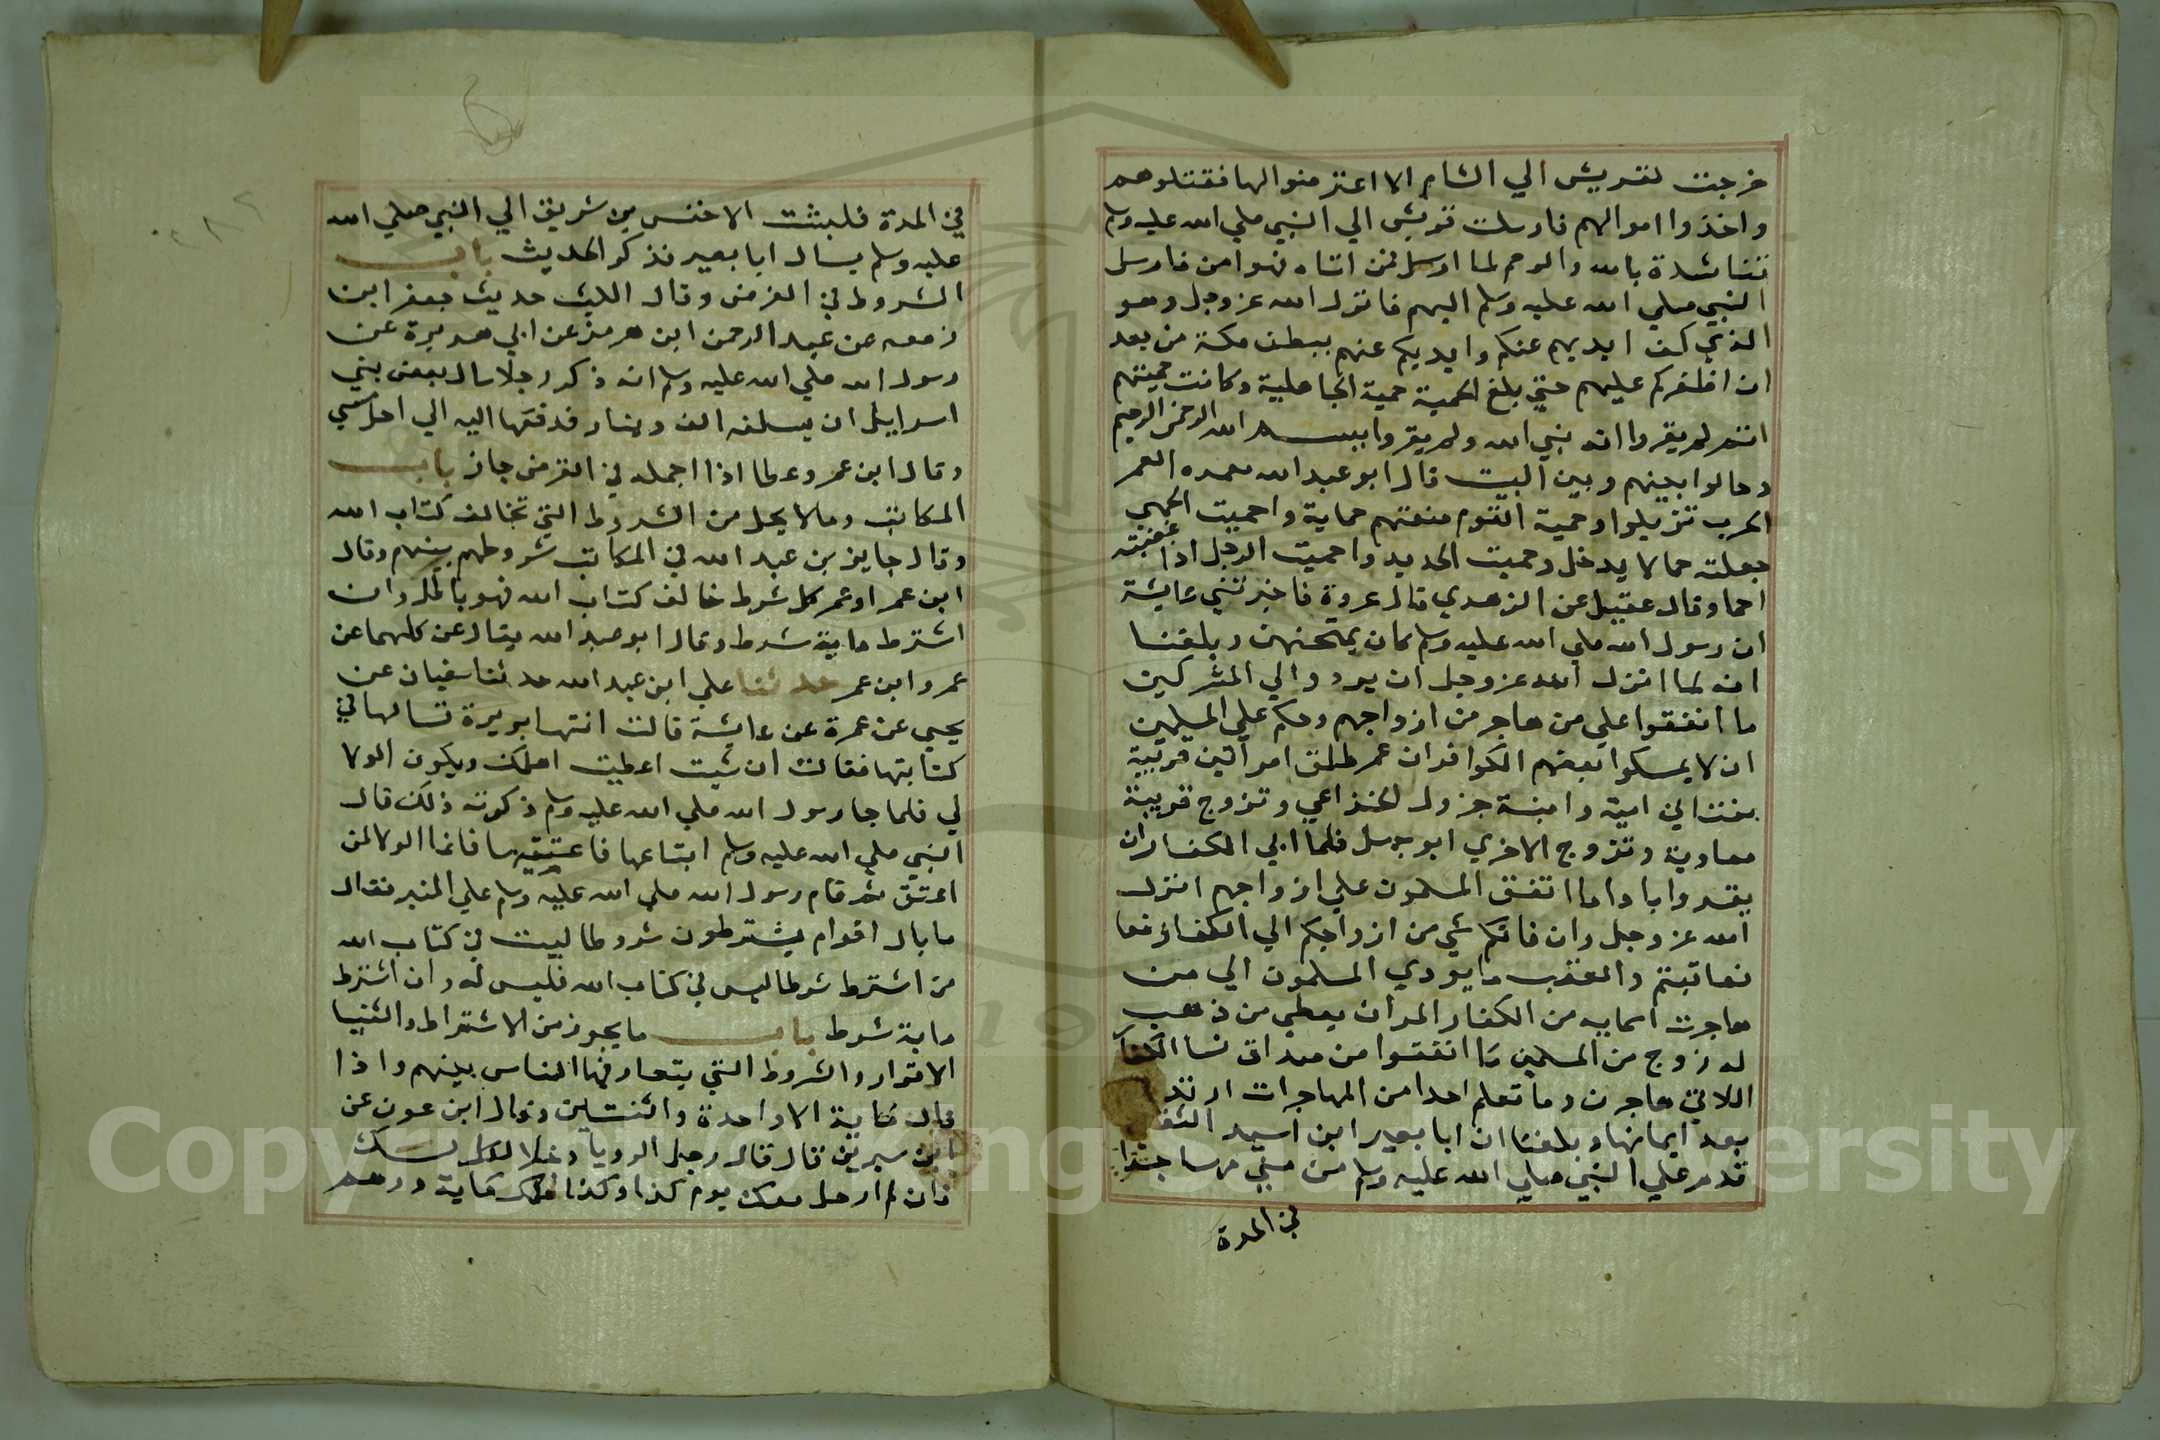 خرجت لقريش الي الشام الا اعترضوا لها فقتلوهم
واخذوا اموالهم فارسلت قريش الي النبي صلي الله عليه وسلم
تناشده بالله والرحم لما ارسل فمن اتاه فهو امن فارسل
النبي صلي الله عليه وسلم اليهم فانزل الله عز وجل وهو
الذي كف ايديهم عنكم وايديكم عنهم ببطن مكة من بعد
ان اظفركم عليهم حتي بلغ الحمية حمية الجاهلية وكانت حميتهم
انهم لم يقروا انه نبي الله ولم يقروا ببسم الله الرحمن الرحيم
وحالوا بينهم وبين البيت قال ابو عبد الله معره العر
الجرب تزيلوا وحمية القوم منعتهم حماية واحميت الحمي
جعلته حما لا يدخل وحميت الحديد واحميت الرجل اذا اغضبته
احما وقال عقيل عن الزهري قال عروة فاخبرتني عايشة
ان رسول الله صلي الله عليه وسلم كان يمتحنهن وبلغنا
انه لما انزل الله عز وجل ان يردوا الي المشركين
ما انفقوا علي من هاجر من ازواجهم وحكم علي المسلمين
ان لا يمسكوا بعصم الكوافر ان عمر طلق امراتين قريبة
بنت ابي امية وابنة جرول الخزاعي وتزوج قريبة
معاوية وتزوج الاخري ابو جهل فلما ابي الكفار ان
يقروا باداء ما انفق المسلمون علي ازواجهم انزل
الله عز وجل وان فاتكم شي من ازواجكم الي الكفار فعا
فعاقبتم والعقب ما يودي المسلمون الي من
هاجرت امراته من الكفار امر ان يعطي من ذهب
له زوج من المسلمين ما انفقوا من صداق نسا الكفار
اللاتي هاجرن وما نعلم احدا من المهاجرات ارتدت
بعد ايمانها وبلغنا ان ابا بصير ابن اسيد الثقفي
قدم علي النبي صلي الله عليه وسلم من مني مهاجرا
في المدة
في المدة فلبثت الاخنس بن شريق الي النبي صلي الله
عليه وسلم يسال ابا بصير فذكر الحديث باب
الشروط في القرض وقال الليث حديث جعفر ابن
زمعه عن عبد الرحمن ابن هرمز عن ابي هريرة عن
رسول الله صلي الله عليه وسلم انه ذكر رجلا سال بعض بني
اسرايل ان يسلفه الف دينار فدفعها اليه الي اجل مسمي
وقال ابن عمر وعطا اذا اجمله في القرض جاز باب
المكاتب وما لا يحل من الشروط التي تخالف كتاب الله
وقال جابر بن عبد الله في المكاتب شروطهم بينهم وقال
ابن عمر او عمر كل شرط خالف كتاب الله فهو باطل وان
اشترط ماية شرط وقال ابو عبد الله يقال عن كلهما عن
عمر وابن عمر حدثنا علي ابن عبد الله حدثنا سفيان عن
يحيي عن عمرة عن عايشة قالت اتتها بريرة تسالها في
كتابتها فقالت ان شيت اعطيت اهلك ويكون الولا
لي فلما جا رسول الله صلي الله عليه وسلم ذكرته ذلك قال
النبي صلي الله عليه وسلم ابتاعها فاعتقيها فانما الولا لمن
اعتق ثم قام رسول الله صلي الله عليه وسلم علي المنبر فقال
ما بال اقوام يشترطون شروطا ليست في كتاب الله
من اشترط شرطا ليس في كتاب الله فليس له وان اشترط
ماية شرط باب ما يجوز من الاشتراط والثنيا
الاقرار والشروط التي يتعارفها الناس بينهم واذا
قال ماية الا واحدة واثنتين وقال ابن عون عن
ابن سيرين قال قال رجل
فان لم ارحل معك يوم كذا وكذا فلك ماية درهم